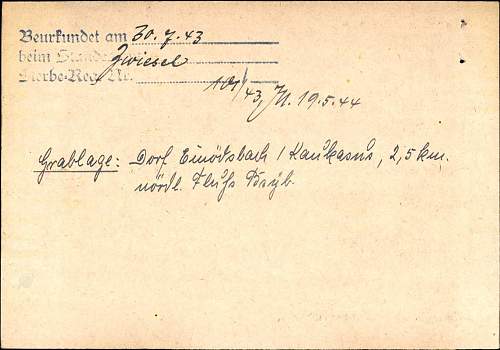 Beurkundet am 30.7.43
beim Standes Zwiesel
Sterbe-Reg. Nr. 101/43, 19.5.44
Grablage: Dorf Einödsbach / Kaukasus, 2,5 km.
nördl. Fluß Bsyb.